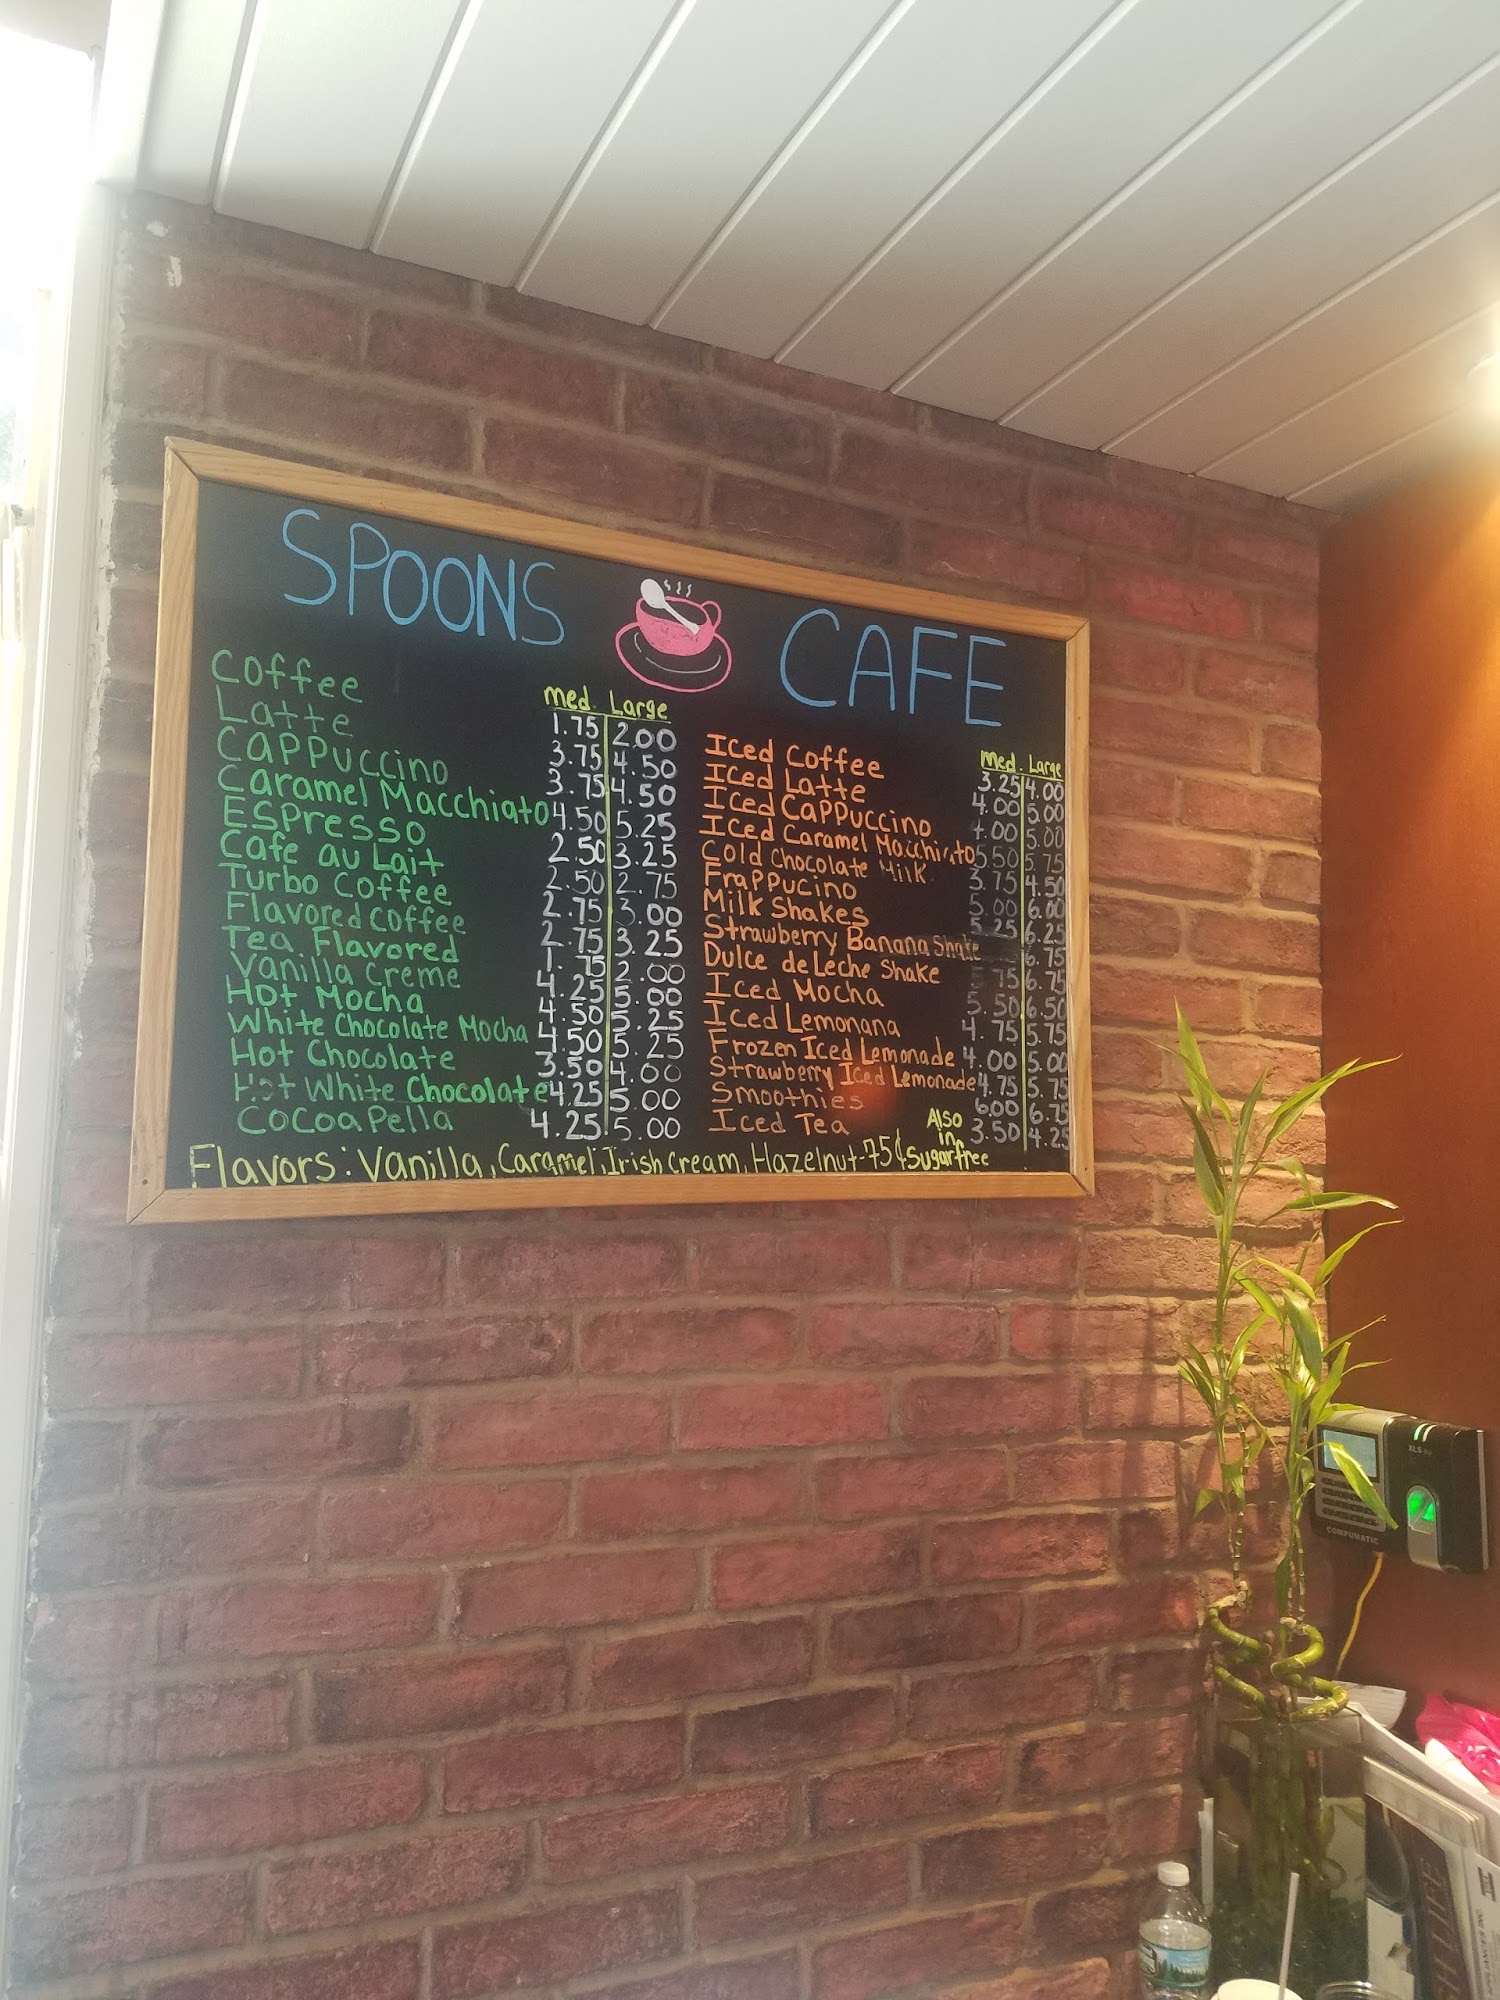 SPOONS CAFE
Med. Large
Coffee 1.75 2.00
Latte 3.75 4.50
Cappuccino 3.75 4.50
Caramel Macchiato 4.50 5.25
Espresso 2.50 3.25
Cafe au Lait 2.50 2.75
Turbo Coffee 2.75 3.00
Flavored coffee 2.75 3.25
Tea Flavored 1.75 2.00
Vanilla Creme 4.25 5.00
Hot Mocha 4.50 5.25
White Chocolate Mocha 4.50 5.25
Hot Chocolate 3.50 4.00
Hot White Chocolate 4.25 5.00
CoCoa Pella 4.25 5.00
Med. Large
Iced Coffee 3.25 4.00
Iced Latte 4.00 5.00
Iced Cappuccino 4.00 5.00
Iced Caramel Macchiato 5.50 5.75
Cold Chocolate Milk 3.75 4.50
Frappucino 5.00 6.00
Milk Shakes 5.25 6.25
Strawberry Banana Shake 6.75
Dulce de Leche Shake 6.75
Iced Mocha 5.50 6.50
Iced Lemonana 4.75 5.75
Frozen Iced Lemonade 4.00 5.00
Strawberry Iced Lemonade 4.75 5.75
Smoothies 6.00 6.75
Iced Tea 3.50 4.25
Flavors: Vanilla, Caramel, Irish Cream, Hazelnut-75¢
Also
in
Sugarfree
XLS
COMPUMATIC